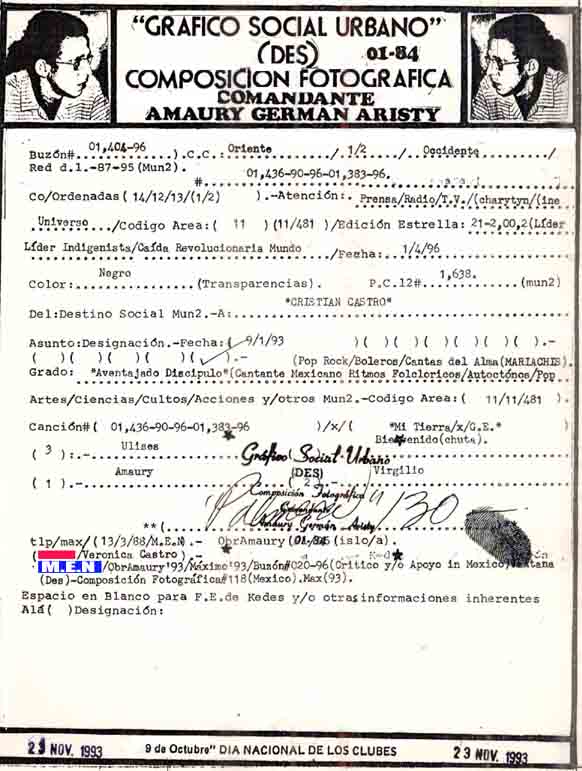 "GRAFICO SOCIAL URBANO"
(DES) 01-84
COMPOSICION FOTOGRAFICA
COMANDANTE
AMAURY GERMAN ARISTY
Buzón#..01,404-96.....).C.C.:Oriente......../.1/2..../..Occidente........../
Red d.l.-87-95(Mun2).
#....01,436-90-96-01,383-96.
Co/Ordenadas(14/12/13/(1/2) ).-Atención:.Prensa/Radio/T.V./(charytyn/(ine
Universo..../Codigo Area:( 11 )(11/481)/Edición Estrella:21-2,00,2(Líder
Líder Indigenista/Caída Revolucionaria Mundo /Fecha: 1/4/96
Color:....Negro.........(Transparencias). P.C.12#..1,638......(mun2)
Del:Destino Social Mun2.-A: *CRISTIAN CASTRO*
Asunto:Designación.-Fecha:( 9/1/93 )( )( )( )( )( )( ).-
( )( )( )( )( ).- (Pop Rock/Boleros/Cantas del Alma(MARIACHIS).
Grado: *Aventajado Discipulo*(Cantante Mexicano Ritmos Folcloricos/Autoctónos/Pop
Artes/Ciencias/Cultos/Acciones y/otros Mun2.-Codigo Area:( 11/11/481 ).
Canción#( 01,436-90-96-01,383-96 )/x/( *Mi Tierra/x/G.E.* )
( 3 ):.- Ulises Bienvenido(chuta).
Gráfico Social Urbano
Amaury (DES) Virgilio
( 1 ).- ( 2 ).-
Composición Fotográfica
Comandante
Amaury Germán Aristy
130
**(
tlp/max/(13/3/88/M.E.N .- ObrAmaury(01-84 (islo/a).
/Veronica Castro).-
M.E.N /ObrAmaury'93/Máximo'93/Buzón#020-96(Critico y/o Apoyo in Mexico)Ventana
(Des)-Composición Fotográfica#118(Mexico).Max(93).
Espacio en Blanco para F.E.de Redes y/o otras informaciones inherentes
Alá( )Designación:
23 NOV. 1993 9 de Octubre" DIA NACIONAL DE LOS CLUBES 23 NOV. 1993